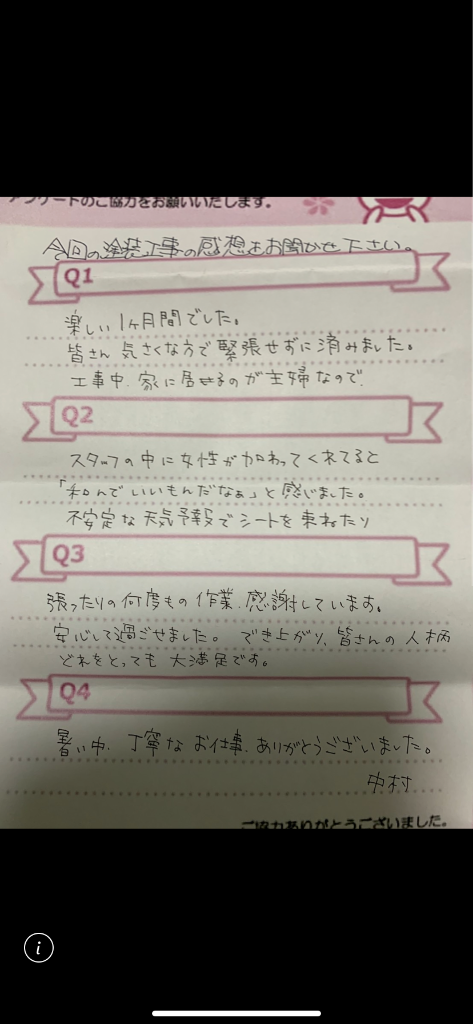 アンケートのご協力をお願いいたします。
今回の塗装工事の感想をお聞かせ下さい。
Q1
楽しい1ヶ月間でした。
皆さん 気さくな方で緊張せずに済みました。
工事中、家に居せるのが主婦なので、
Q2
スタッフの中に女性が加わってくれてると
「和んでいいもんだなぁ」と感じました。
不安定な天気予報でシートを束ねたり
Q3
張ったりの何度もの作業、感謝しています。
安心して過ごせました。 でき上がり、皆さんの人柄
どれをとっても 大満足です。
Q4
暑い中、丁寧な お仕事、ありがとうございました。
中村
ご協力ありがとうございました。